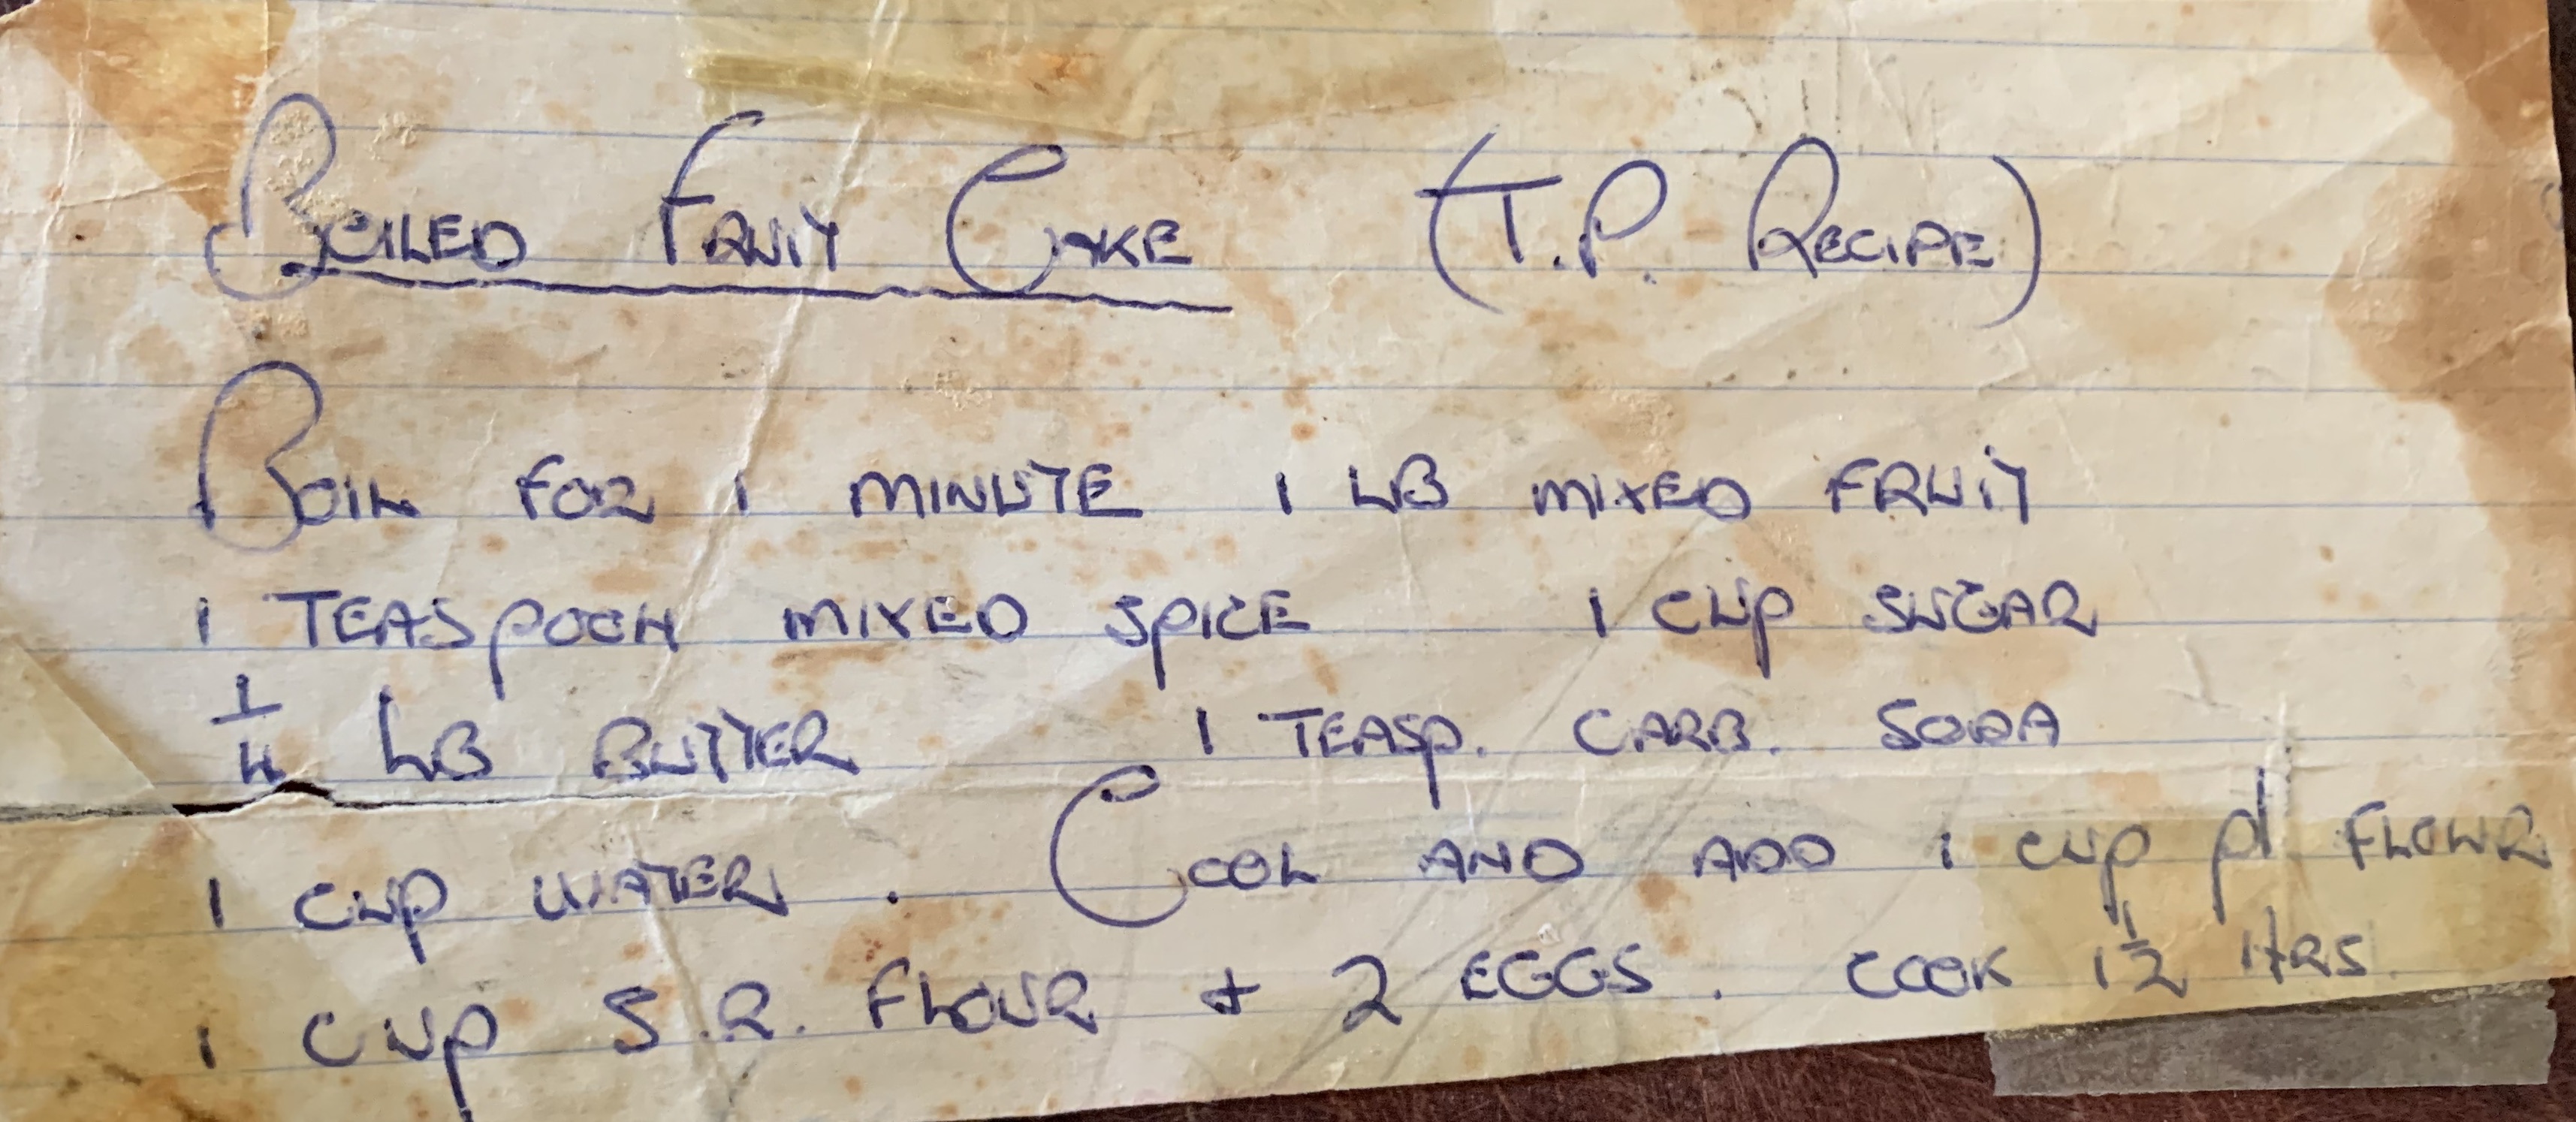 BOILED FRUIT CAKE (T.P. RECIPE)
BOIL FOR 1 MINUTE 1 LB MIXED FRUIT
1 TEASPOON MIXED SPICE 1 CUP SUGAR
1/4 LB BUTTER 1 TEASP. CARB. SODA
1 CUP WATER. COOL AND ADD 1 CUP pl. FLOUR
1 CUP S.R. FLOUR + 2 EGGS. COOK 1 1/2 HRS.